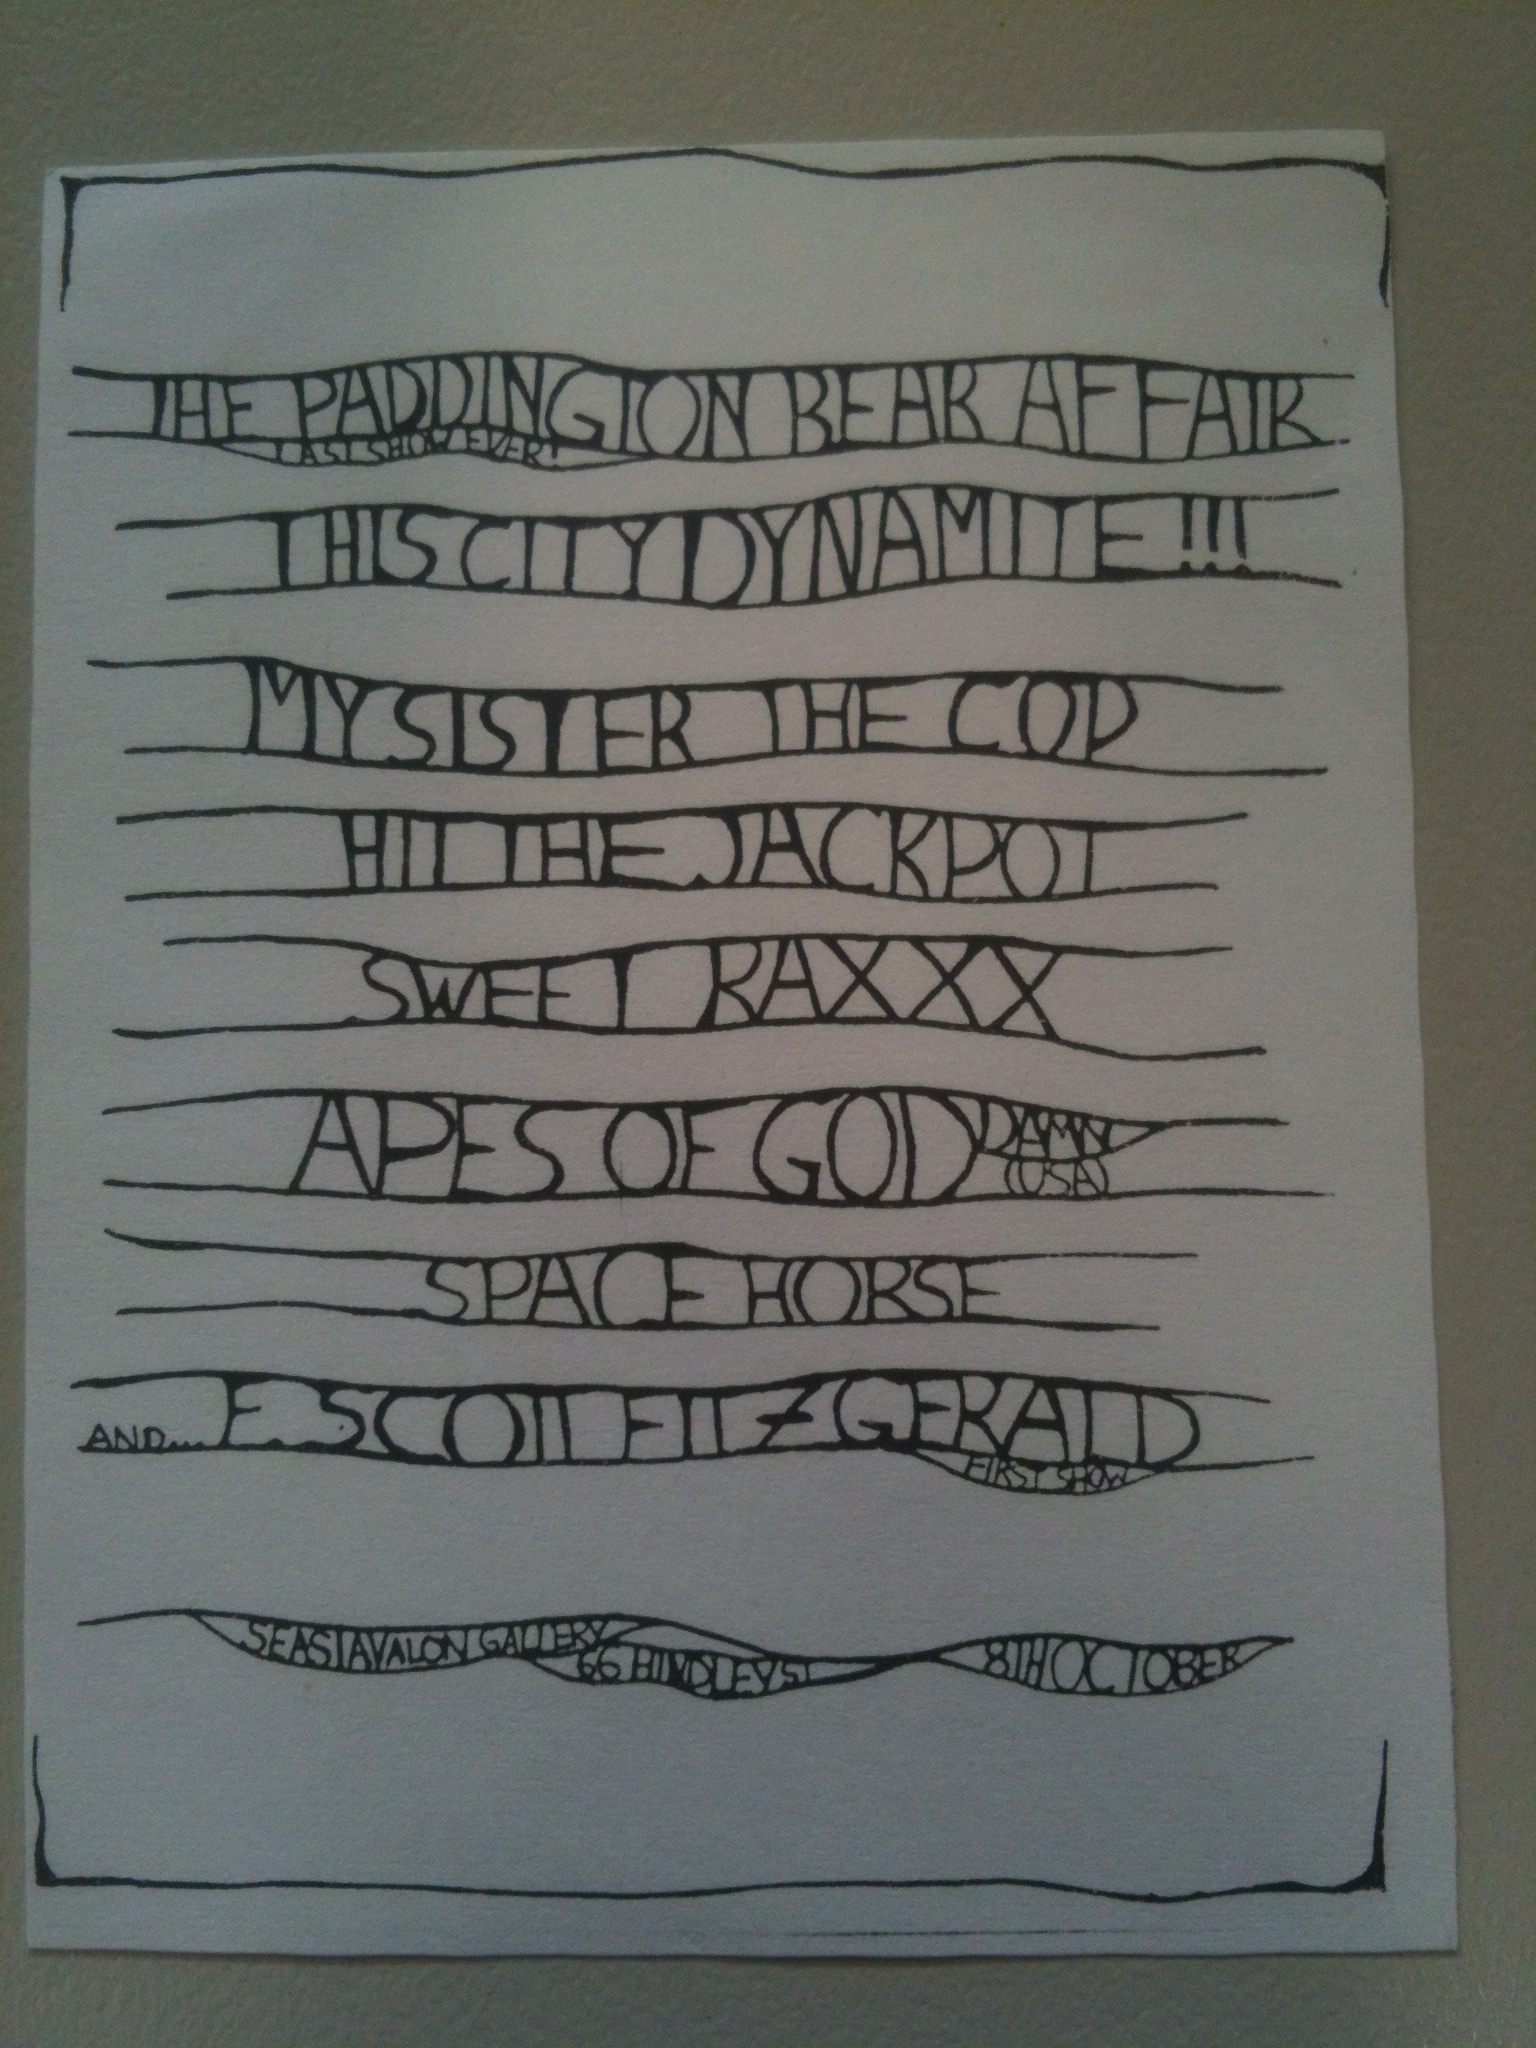 THE PADDINGTON BEAR AFFAIR
LAST SHOW EVER!
THIS CITY DYNAMITE!!!
MY SISTER THE COP
HIT THE JACKPOT
SWEET RAXXX
APES OF GOD DAMN
(USA)
SPACE HORSE
AND... F. SCOTT FITZGERALD
FIRST SHOW
SEAS I AVALON GALLERY
66 HINDLEY ST
8TH OCTOBER